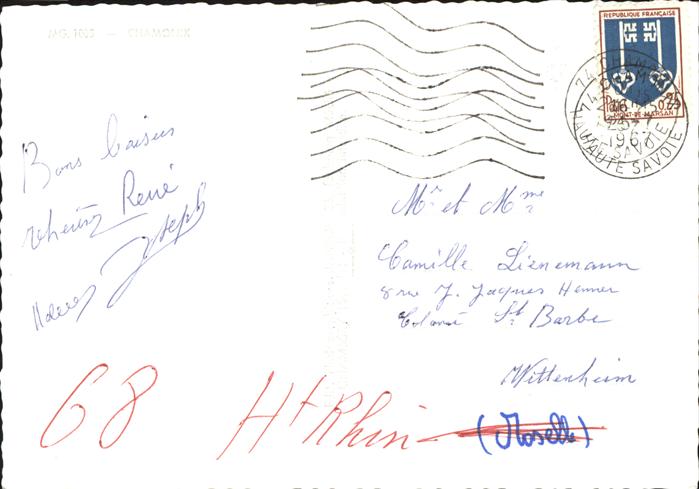 MG. 1003 - CHAMONIX
REPUBLIQUE FRANÇAISE
0,25
MONT-DE-MARSAN
74 CHAMONIX
1967
HAUTE SAVOIE
Bons baisers
René
Joseph
Mr et Mme
Camille Lienemann
8 rue J. Jacques Henner
St Barbe
Wittenheim
68 Ht Rhin (Moselle)